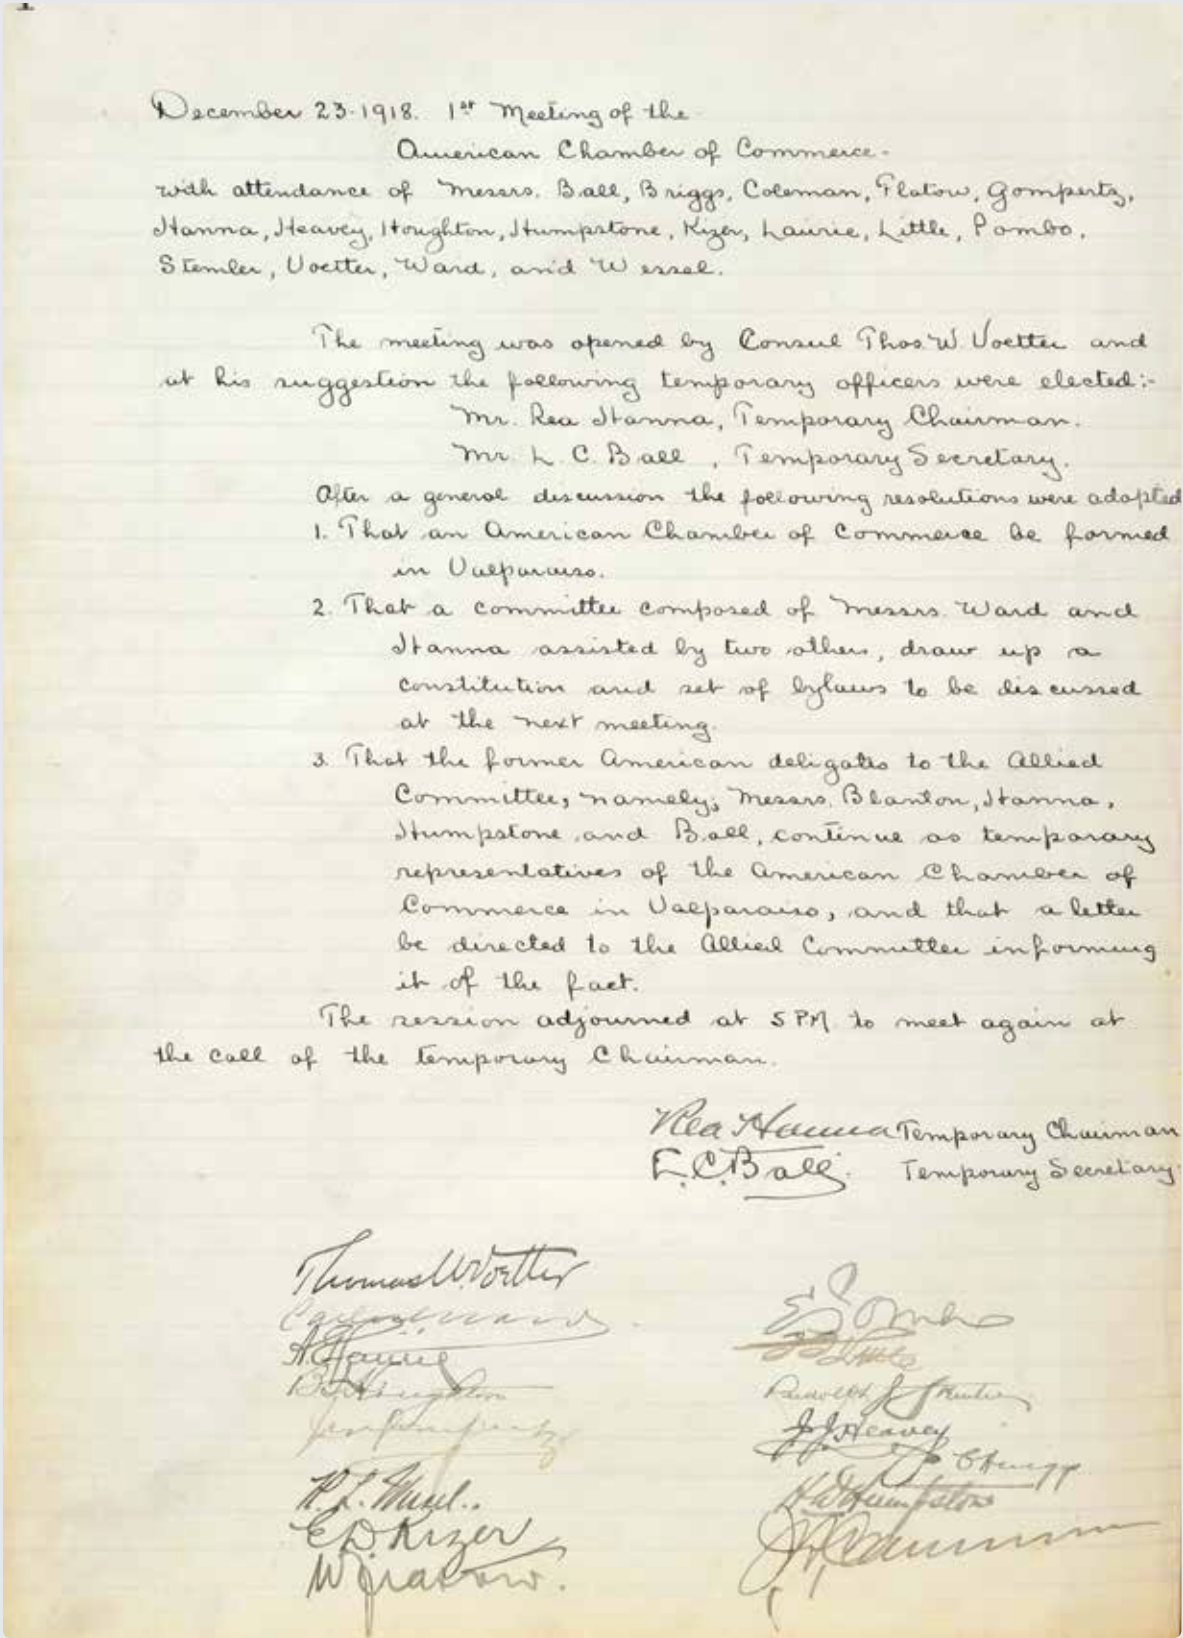 1
December 23-1918. 1st Meeting of the
American Chamber of Commerce-
with attendance of Messrs. Ball, Briggs, Coleman, Flatow, Gompertz,
Hanna, Heavey, Houghton, Humpstone, Kizer, Laurie, Little, Pombo,
Stemler, Voetter, Ward, and Wessel.
The meeting was opened by Consul Thos W. Voetter and
at his suggestion the following temporary officers were elected:-
Mr. Rea Hanna, Temporary Chairman.
Mr. L. C. Ball, Temporary Secretary.
After a general discussion the following resolutions were adopted
1. That an American Chamber of Commerce be formed
in Valparaiso.
2. That a committee composed of Messrs. Ward and
Hanna assisted by two others, draw up a
constitution and set of bylaws to be discussed
at the next meeting.
3. That the former American deligates to the Allied
Committee, namely; Messrs. Blanton, Hanna,
Humpstone and Ball, continue as temporary
representatives of the American Chamber of
Commerce in Valparaiso, and that a letter
be directed to the Allied Committee informing
it of the fact.
The session adjourned at 5 PM to meet again at
the call of the temporary Chairman.
Rea Hanna Temporary Chairman
L. C. Ball. Temporary Secretary.
Thomas W. Voetter
E Pombo
Ward
Little
A Laurie
Houghton
J J Heavey
H D Humpstone
E. D. Kizer
W Flatow.